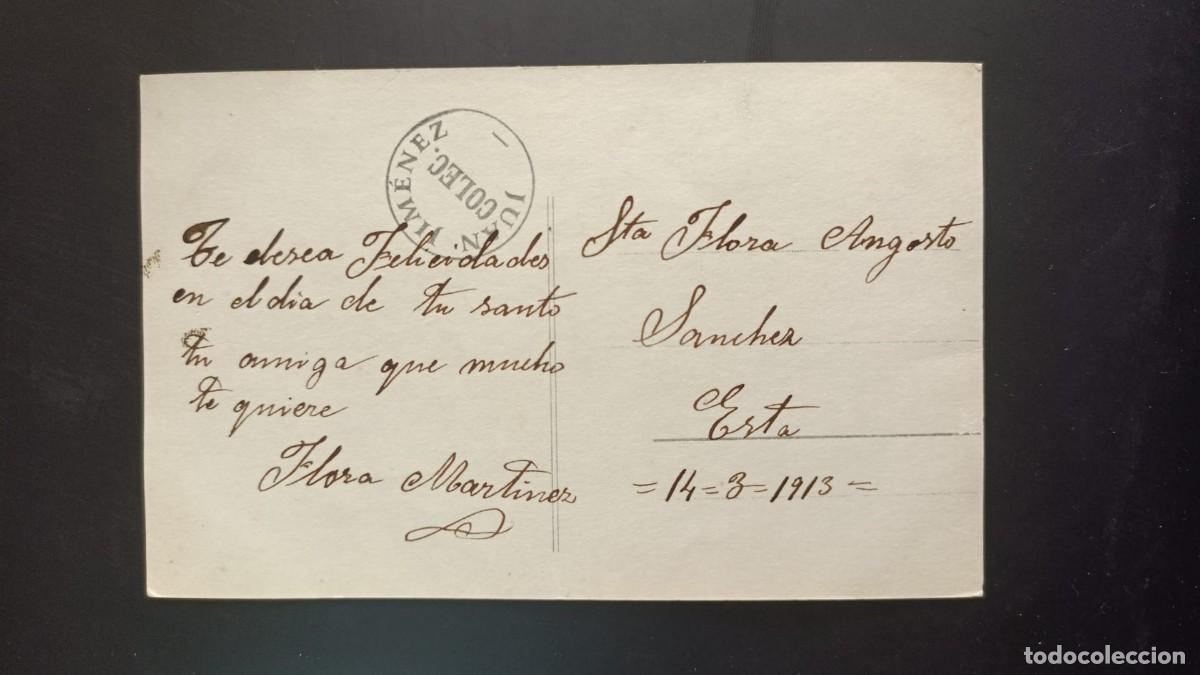 JUAN JIMÉNEZ
COLEC.
Te desea Felicidades
en el dia de tu santo
tu amiga que mucho
te quiere
Flora Martinez
Sta Flora Angosto
Sanchez
Esta
= 14 = 3 = 1913 =
todocoleccion